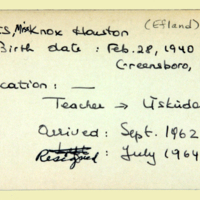 (Efland)
TS, Miss Knox Houston
Birth date : Feb. 28, 1940
Greensboro,
cation : —
Teacher → Üsküda
Arrived : Sept. 1962
Resigned : July 1964